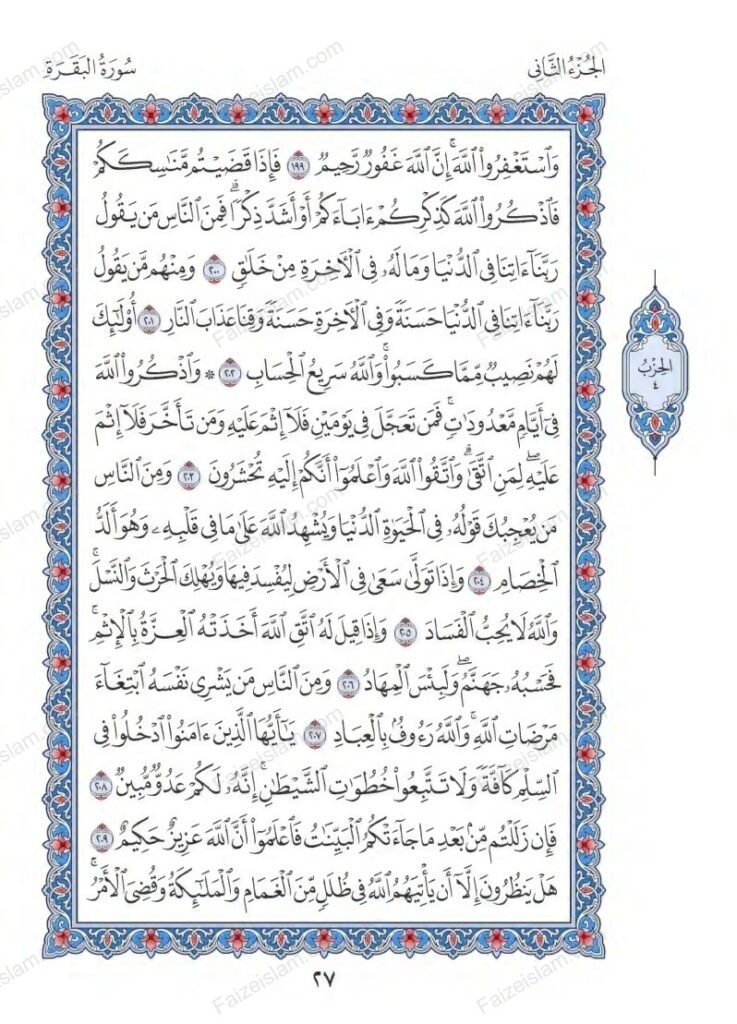 الجُزْءُ الثَّانِي
سُورَةُ البَقَرَةِ
وَاسْتَغْفِرُوا اللَّهَ إِنَّ اللَّهَ غَفُورٌ رَّحِيمٌ ١٩٩ فَإِذَا قَضَيْتُم مَّنَاسِكَكُمْ
فَاذْكُرُوا اللَّهَ كَذِكْرِكُمْ ءَابَاءَكُمْ أَوْ أَشَدَّ ذِكْرًا ۗ فَمِنَ النَّاسِ مَن يَقُولُ
رَبَّنَا ءَاتِنَا فِي الدُّنْيَا وَمَا لَهُۥ فِي الْأَخِرَةِ مِنْ خَلَٰقٍ ٢٠٠ وَمِنْهُم مَّن يَقُولُ
رَبَّنَا ءَاتِنَا فِي الدُّنْيَا حَسَنَةً وَفِي الْأَخِرَةِ حَسَنَةً وَقِنَا عَذَابَ النَّارِ ٢٠١ أُولَٰئِكَ
لَهُمْ نَصِيبٌ مِّمَّا كَسَبُوا ۚ وَاللَّهُ سَرِيعُ الْحِسَابِ ٢٠٢ * وَاذْكُرُوا اللَّهَ
فِي أَيَّامٍ مَّعْدُودَٰتٍ ۚ فَمَن تَعَجَّلَ فِي يَوْمَيْنِ فَلَا إِثْمَ عَلَيْهِ وَمَن تَأَخَّرَ فَلَا إِثْمَ
عَلَيْهِ ۖ لِمَنِ اتَّقَىٰ ۗ وَاتَّقُوا اللَّهَ وَاعْلَمُوا أَنَّكُمْ إِلَيْهِ تُحْشَرُونَ ٢٠٣ وَمِنَ النَّاسِ
مَن يُعْجِبُكَ قَوْلُهُۥ فِي الْحَيَوٰةِ الدُّنْيَا وَيُشْهِدُ اللَّهَ عَلَىٰ مَا فِي قَلْبِهِۦ وَهُوَ أَلَدُّ
الْخِصَامِ ٢٠٤ وَإِذَا تَوَلَّىٰ سَعَىٰ فِي الْأَرْضِ لِيُفْسِدَ فِيهَا وَيُهْلِكَ الْحَرْثَ وَالنَّسْلَ ۗ
وَاللَّهُ لَا يُحِبُّ الْفَسَادَ ٢٠٥ وَإِذَا قِيلَ لَهُ اتَّقِ اللَّهَ أَخَذَتْهُ الْعِزَّةُ بِالْإِثْمِ ۚ
فَحَسْبُهُۥ جَهَنَّمُ ۖ وَلَبِئْسَ الْمِهَادُ ٢٠٦ وَمِنَ النَّاسِ مَن يَشْرِي نَفْسَهُ ابْتِغَاءَ
مَرْضَاتِ اللَّهِ ۚ وَاللَّهُ رَءُوفٌ بِالْعِبَادِ ٢٠٧ يَٰأَيُّهَا الَّذِينَ ءَامَنُوا ادْخُلُوا فِي
السِّلْمِ كَافَّةً وَلَا تَتَّبِعُوا خُطُوَٰتِ الشَّيْطَٰنِ ۚ إِنَّهُۥ لَكُمْ عَدُوٌّ مُّبِينٌ ٢٠٨
فَإِن زَلَلْتُم مِّنۢ بَعْدِ مَا جَاءَتْكُمُ الْبَيِّنَٰتُ فَاعْلَمُوا أَنَّ اللَّهَ عَزِيزٌ حَكِيمٌ ٢٠٩
هَلْ يَنظُرُونَ إِلَّا أَن يَأْتِيَهُمُ اللَّهُ فِي ظُلَلٍ مِّنَ الْغَمَامِ وَالْمَلَٰئِكَةُ وَقُضِيَ الْأَمْرُ ۚ
الحِزْبُ
٤
٢٧
Faizeislam.com